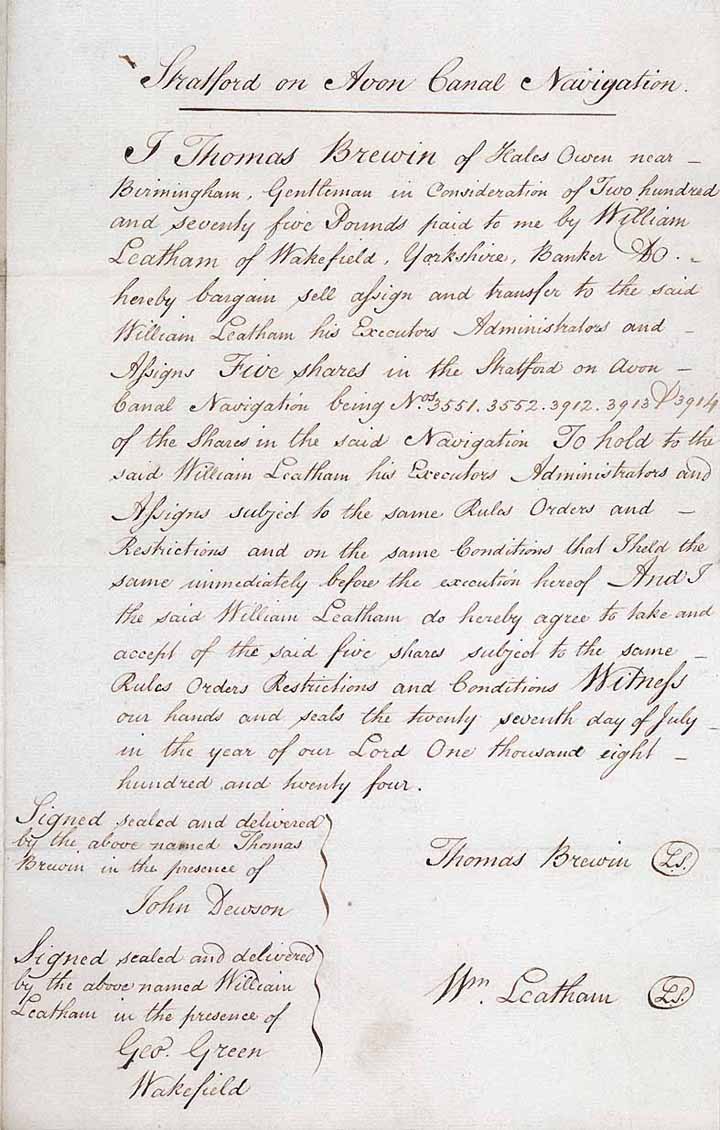 Stratford on Avon Canal Navigation.
I Thomas Brewin of Hales Owen near –
Birmingham, Gentleman in Consideration of Two hundred
and seventy five Pounds paid to me by William
Leatham of Wakefield, Yorkshire, Banker Do. –
hereby bargain sell aſsign and transfer to the said
William Leatham his Executors Administrators and –
Aſsigns Five shares in the Stratford on Avon –
Canal Navigation being Nos. 3551. 3552. 3912. 3913 & 3914
of the Shares in the said Navigation To hold to the
said William Leatham his Executors Administrators and
Aſsigns subject to the same Rules Orders and –
Restrictions and on the same Conditions that I held the
same immediately before the execution hereof And I
the said William Leatham do hereby agree to take and
accept of the said five shares subject to the same –
Rules Orders Restrictions and Conditions Witneſs
our hands and seals the twenty seventh day of July –
in the year of our Lord One thousand eight –
hundred and twenty four.
Signed sealed and delivered
by the above named Thomas
Brewin in the presence of
John Dewson
Thomas Brewin L.S.
Signed sealed and delivered
by the above named William
Leatham in the presence of
Geo. Green
Wakefield
Wm. Leatham L.S.